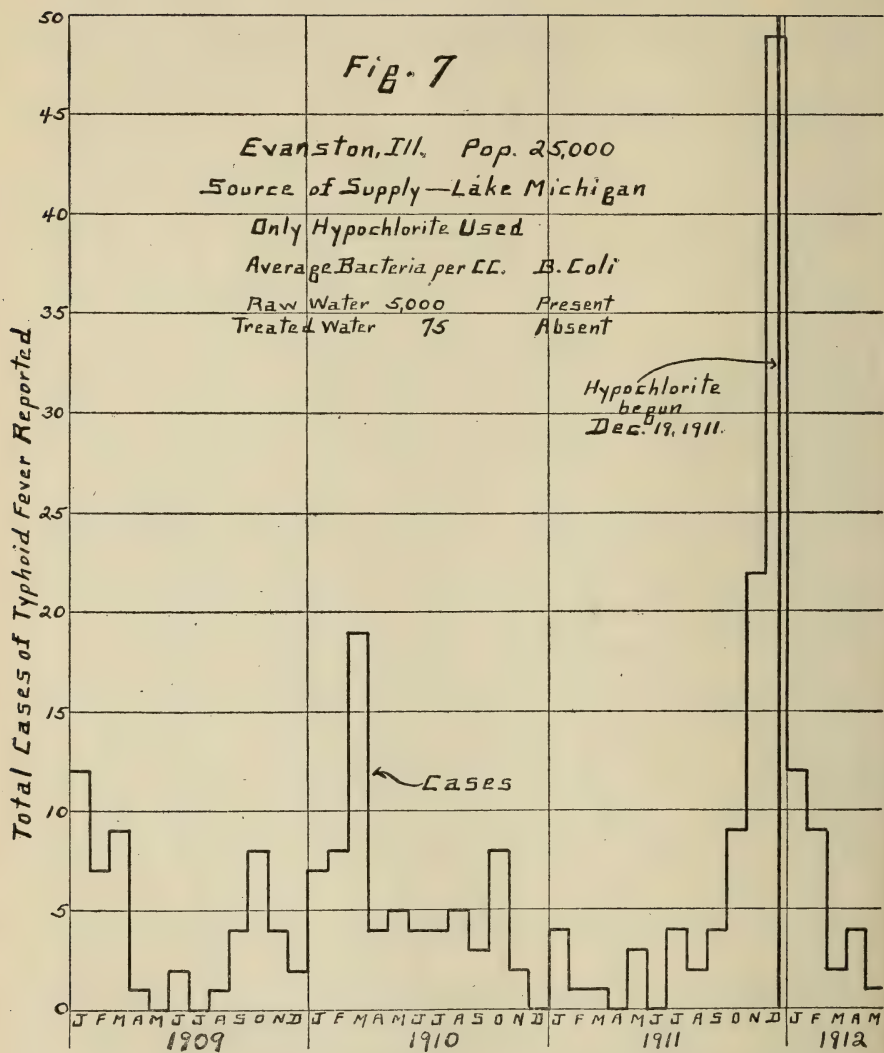 Fig. 7
Evanston, Ill. Pop. 25,000
Source of Supply—Lake Michigan
Only Hypochlorite Used
Average Bacteria per CC. B. Coli
Raw Water 5,000 Present
Treated Water 75 Absent
Hypochlorite
begun
Dec. 19, 1911.
Cases
Total Cases of Typhoid Fever Reported
50
45
40
35
30
25
20
15
10
5
0
J F M A M J J A S O N D J F M A M J J A S O N D J F M A M J J A S O N D J F M A M
1909 1910 1911 1912